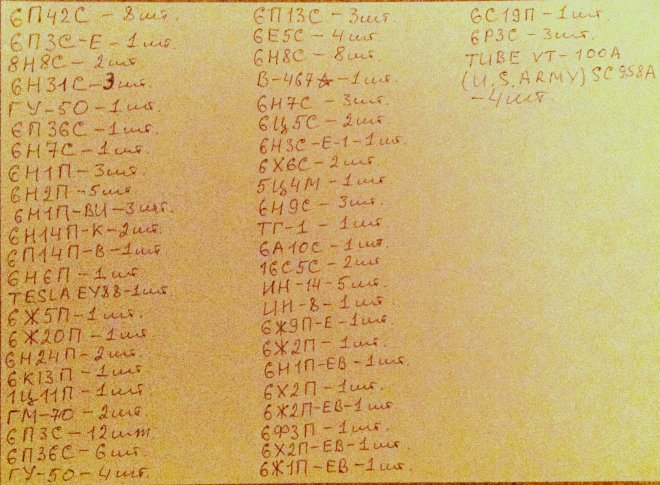 6П42С - 8шт.
6П3С-Е - 1шт.
8Н8С - 2шт
6Н31С - 3шт.
ГУ-50 - 1шт.
6П36С - 1шт.
6Н7С - 1шт.
6Н1П - 3шт.
6Н2П - 5шт.
6Н1П-ВИ - 3шт.
6Н14П-К - 2шт.
6П14П-В - 1шт
6Н6П - 1шт
TESLA EY88 - 1шт.
6Ж5П - 1шт.
6Ж20П - 1шт
6Н24П - 2шт.
6К13П - 1шт.
1Ц11П - 1шт.
ГМ-70 - 2шт.
6П3С - 12шт.
6П36С - 6шт.
ГУ-50 - 4шт.
6П13С - 3шт.
6Е5С - 4шт.
6Н8С - 8шт.
В-467 - 1шт.
6Н7С - 3шт.
6Ц5С - 2шт.
6Н3С-Е-1 - 1шт.
6Х6С - 2шт.
5Ц4М - 1шт
6Н9С - 3шт.
ТГ-1 - 1шт.
6А10С - 1шт.
16С5С - 2шт
ИН-14 - 5шт.
ИН-8 - 1шт.
6Ж9П-Е - 1шт.
6Ж2П - 1шт.
6Н1П-ЕВ - 1шт.
6Х2П - 1шт.
6Ж2П-ЕВ - 1шт
6Ф3П - 1шт.
6Х2П-ЕВ - 1шт.
6Ж1П-ЕВ - 1шт.
6С19П - 1шт.
6Р3С - 3шт.
TUBE VT-100A
(U.S.ARMY) SC958A
- 4шт.